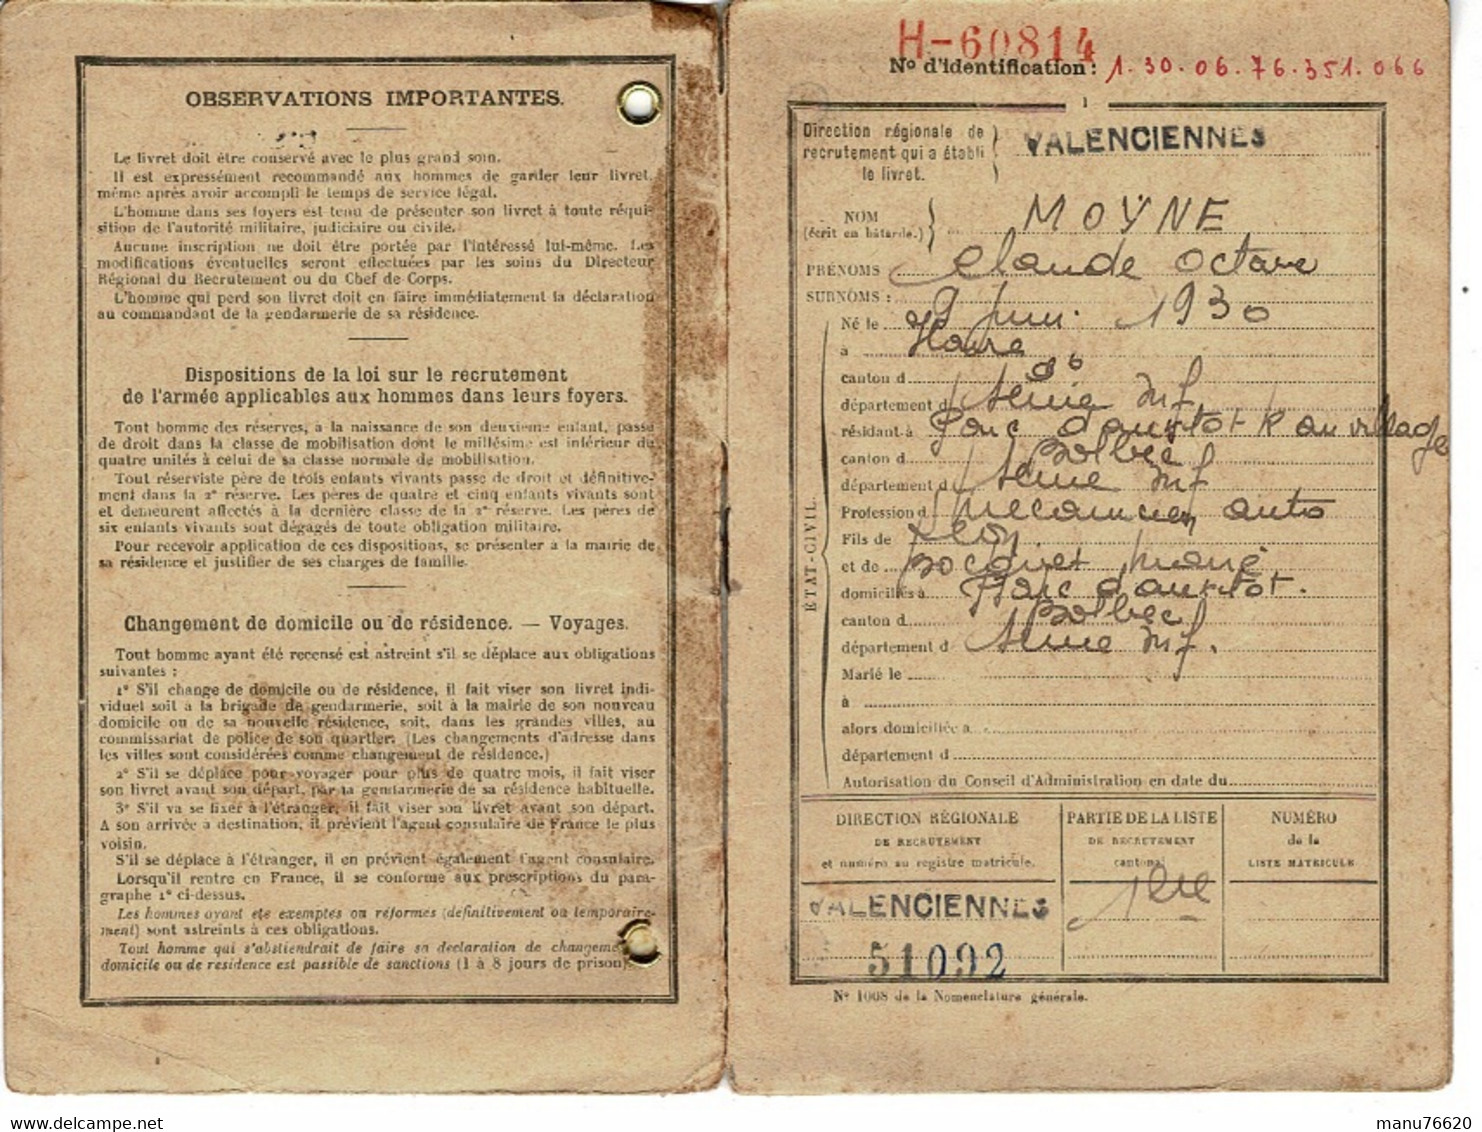 OBSERVATIONS IMPORTANTES.
Le livret doit être conservé avec le plus grand soin.
Il est expressément recommandé aux hommes de garder leur livret,
même après avoir accompli le temps de service légal.
L'homme dans ses foyers est tenu de présenter son livret à toute réqui-
sition de l'autorité militaire, judiciaire ou civile.
Aucune inscription ne doit être portée par l'intéressé lui-même. Les
modifications éventuelles seront effectuées par les soins du Directeur
Régional du Recrutement ou du Chef de Corps.
L'homme qui perd son livret doit en faire immédiatement la déclaration
au commandant de la gendarmerie de sa résidence.
Dispositions de la loi sur le recrutement
de l'armée applicables aux hommes dans leurs foyers.
Tout homme des réserves, à la naissance de son deuxième enfant, passe
de droit dans la classe de mobilisation dont le millésime est inférieur de
quatre unités à celui de sa classe normale de mobilisation.
Tout réserviste père de trois enfants vivants passe de droit et définitive-
ment dans la 2e réserve. Les pères de quatre et cinq enfants vivants sont
et demeurent affectés à la dernière classe de la 2e réserve. Les pères de
six enfants vivants sont dégagés de toute obligation militaire.
Pour recevoir application de ces dispositions, se présenter à la mairie de
sa résidence et justifier de ses charges de famille.
Changement de domicile ou de résidence. — Voyages.
Tout homme ayant été recensé est astreint s'il se déplace aux obligations
suivantes :
1° S'il change de domicile ou de résidence, il fait viser son livret indi-
viduel soit à la brigade de gendarmerie, soit à la mairie de son nouveau
domicile ou de sa nouvelle résidence, soit, dans les grandes villes, au
commissariat de police de son quartier. (Les changements d'adresse dans
les villes sont considérées comme changement de résidence.)
2° S'il se déplace pour voyager pour plus de quatre mois, il fait viser
son livret avant son départ, par la gendarmerie de sa résidence habituelle.
3° S'il va se fixer à l'étranger, il fait viser son livret avant son départ.
A son arrivée à destination, il prévient l'agent consulaire de France le plus
voisin.
S'il se déplace à l'étranger, il en prévient également l'agent consulaire.
Lorsqu'il rentre en France, il se conforme aux prescriptions du para-
graphe 1° ci-dessus.
Les hommes ayant été exemptés ou réformés (définitivement ou temporaire-
ment) sont astreints à ces obligations.
Tout homme qui s'abstiendrait de faire sa déclaration de changeme
domicile ou de résidence est passible de sanctions (1 à 8 jours de prison).
H-60814
No d'identification : 1.30.06.76.351.066
1
Direction régionale de
recrutement qui a établi
le livret.
VALENCIENNES
NOM
(écrit en bâtarde.)
MOYNE
PRÉNOMS Claude Octave
SURNOMS :
ÉTAT-CIVIL.
Né le 9 juin 1930
à Havre
canton d do
département d Seine Inf
résidant à Parc d'anxtot R au village
canton d Bolbec
département d Seine Inf
Profession d mecanicien auto
Fils de Leon
et de Bocquet Marie
domiciliés à Parc d'anxtot.
canton d Bolbec
département d Seine Inf.
Marié le
à
alors domiciliée à
département d
Autorisation du Conseil d'Administration en date du
DIRECTION RÉGIONALE
DE RECRUTEMENT
et numéro au registre matricule.
PARTIE DE LA LISTE
DE RECRUTEMENT
cantonal
NUMÉRO
de la
LISTE MATRICULE
VALENCIENNES
1ere
51092
No 1008 de la Nomenclature générale.
delcampe.net
manu76620